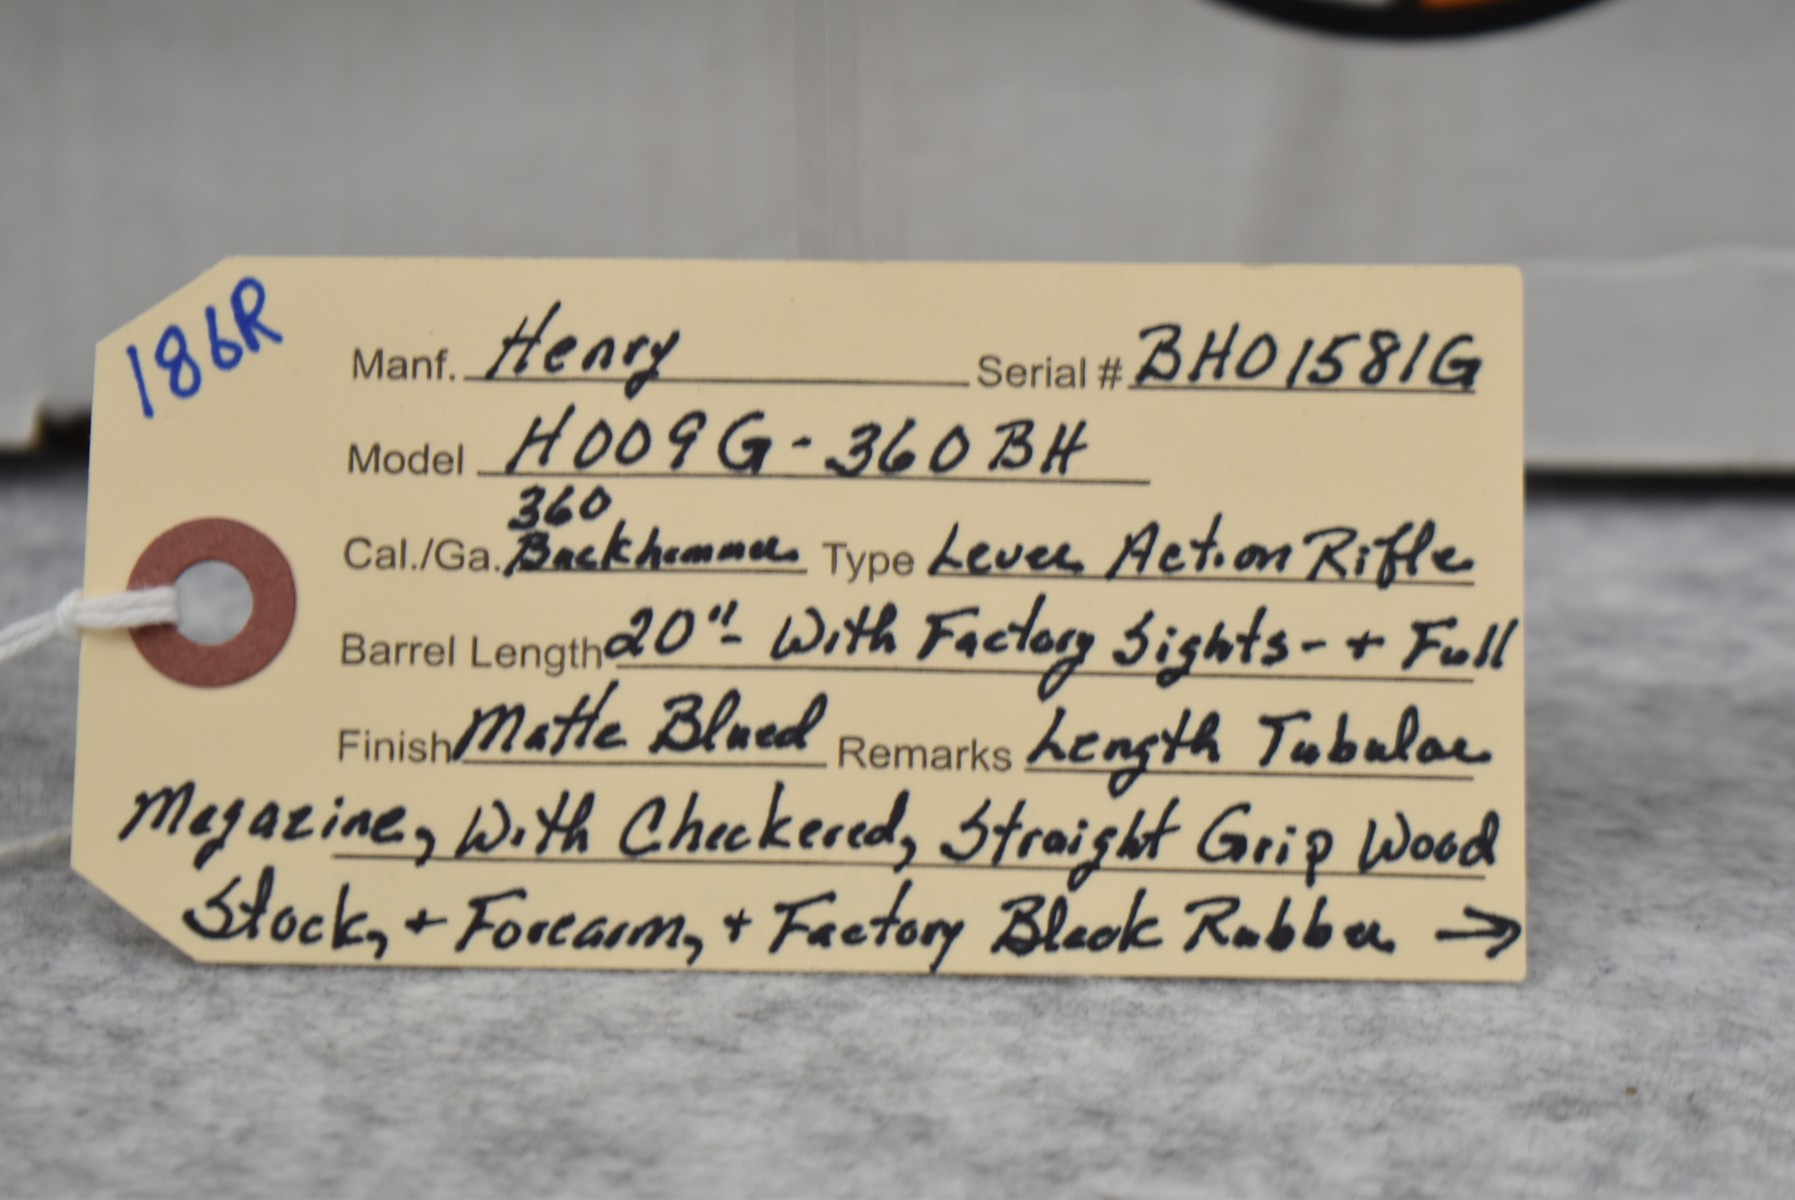 186R
Manf. Henry Serial # BH01581G
Model H009G-360BH
360
Cal./Ga. Buckhammer Type Lever Action Rifle
Barrel Length 20"- With Factory Sights- + Full
Finish Matte Blued Remarks Length Tubular
Magazine, With Checkered, Straight Grip Wood
Stock, + Forearm, + Factory Black Rubber →